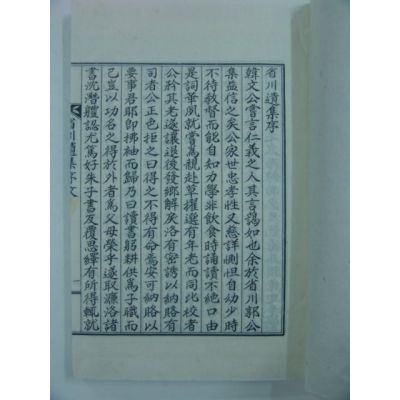 省川遺集序
韓文公嘗言仁義之人其言藹如也余於省川郭公
集益信之矣公家世忠孝性又慈詳惻怛自幼少時
不待敎督而能自知力學非飮食時誦讀不絶口由
是詞華夙就嘗爲親赴草擢選有年老而同此校者
公矜其老遂讓退後發鄕解矣洛有密誘以納賂以
司者公正色拒之曰得之不得有命焉安可納賂以
要事君耶卽拂袖而歸乃曰讀書躬耕供爲子職而
已豈以功名之得於外者爲父母榮乎遂取濂洛諸
書沈潛體認尤篤好朱子書反覆思繹有所得輒就
省川遺集序文
一